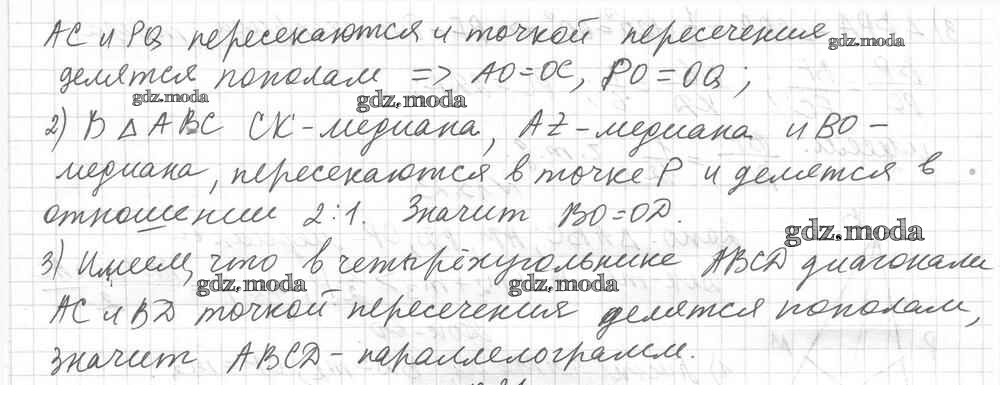 AC и PQ пересекаются и точкой пересечения
gdz.moda
делятся пополам => AO=OC, PO=OQ;
gdz.moda
gdz.moda
2) В △ABC CK-медиана, AZ-медиана и BO-
медиана, пересекаются в точке P и делятся в
отношении 2:1. Значит BO=OD.
gdz.moda
3) Имеем, что в четырёхугольнике ABCD диагонали
gdz.moda
gdz.moda
AC и BD точкой пересечения делятся пополам,
значит ABCD-параллелограмм.